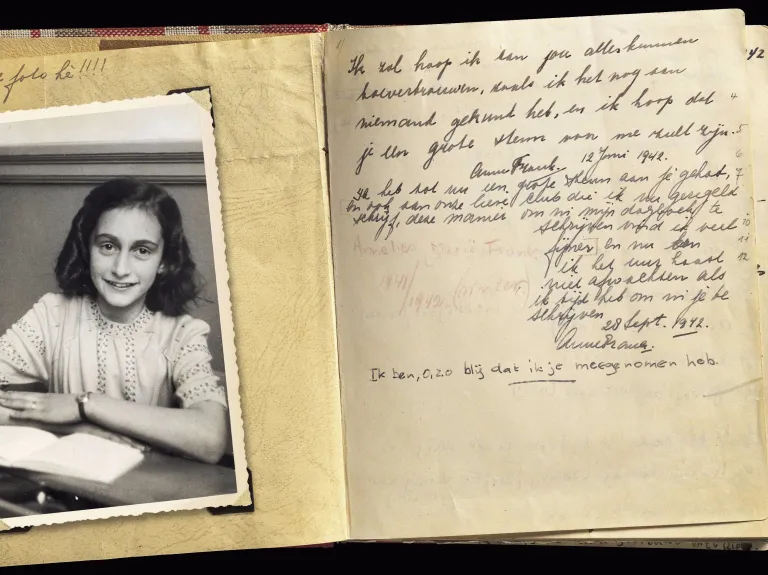 foto hè!!!!
Ik zal hoop ik aan jou alles kunnen
toevertrouwen, zoals ik het nog aan
niemand gekund heb, en ik hoop dat
je een grote steun voor me zult zijn.
Anne Frank. 12 Juni 1942.
Ik heb tot nu een grote steun aan je gehad,
en ook aan onze lieve club die ik nu geregeld
schrijf, deze manier om in mijn dagboek te
schrijven vind ik veel
fijner en nu kan
ik het uur haast
niet afwachten als
ik tijd heb om in je te
schrijven
28 Sept. 1942.
Anne Frank.
Ik ben, o, zo blij dat ik je meegenomen heb.
Annelies Marie Frank
1941/
1942.
42
4
5
6
7
10
11
12